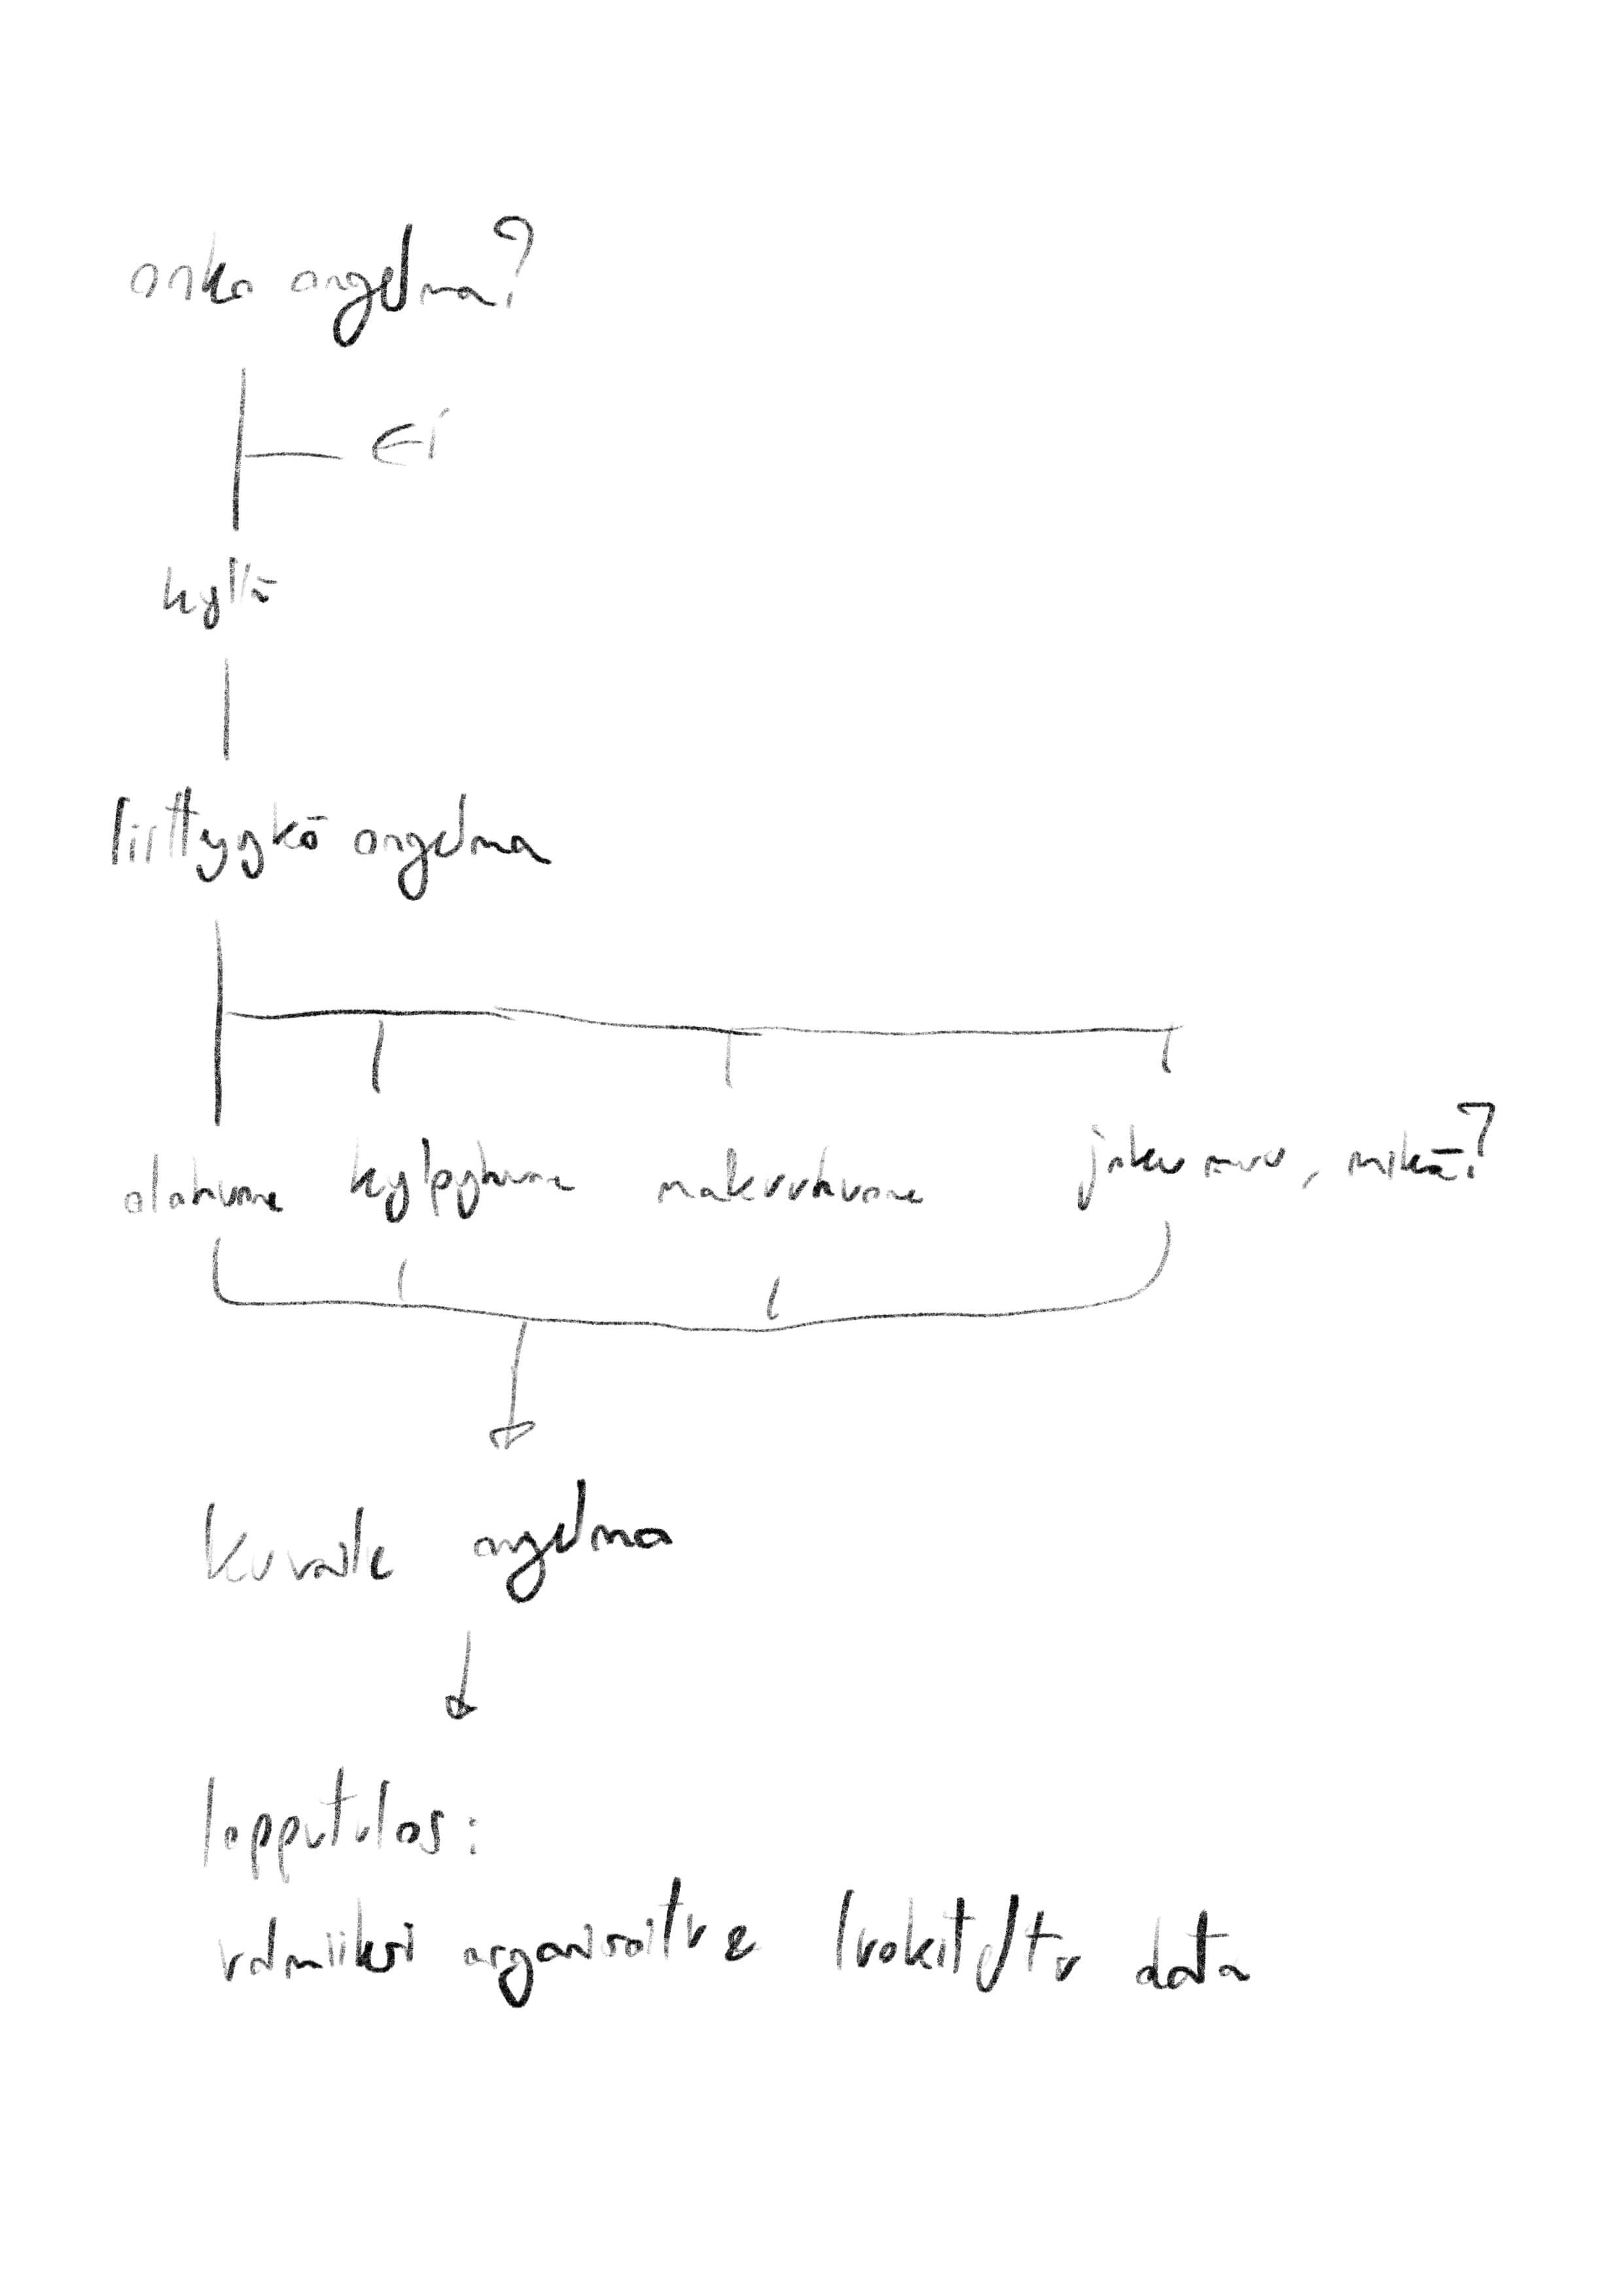 onko ongelma?
Ei
kyllä
liittyykö ongelma
olohuone kylpyhuone makuuhuone joku muu, mikä?
kuvaile ongelma
lopputulos:
valmiiksi organisoitu & luokiteltu data